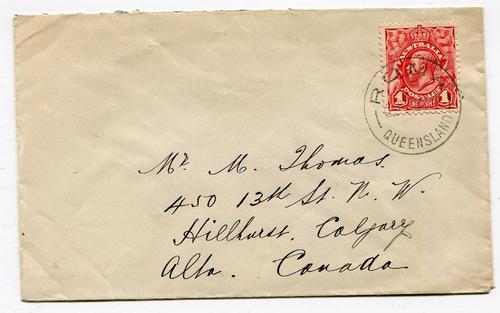 AUSTRALIA
POSTAGE
1 ONE PENNY 1
QUEENSLAND
Mr. M. Thomas.
450 13th St. N. W.
Hillhurst. Calgary
Alta. Canada